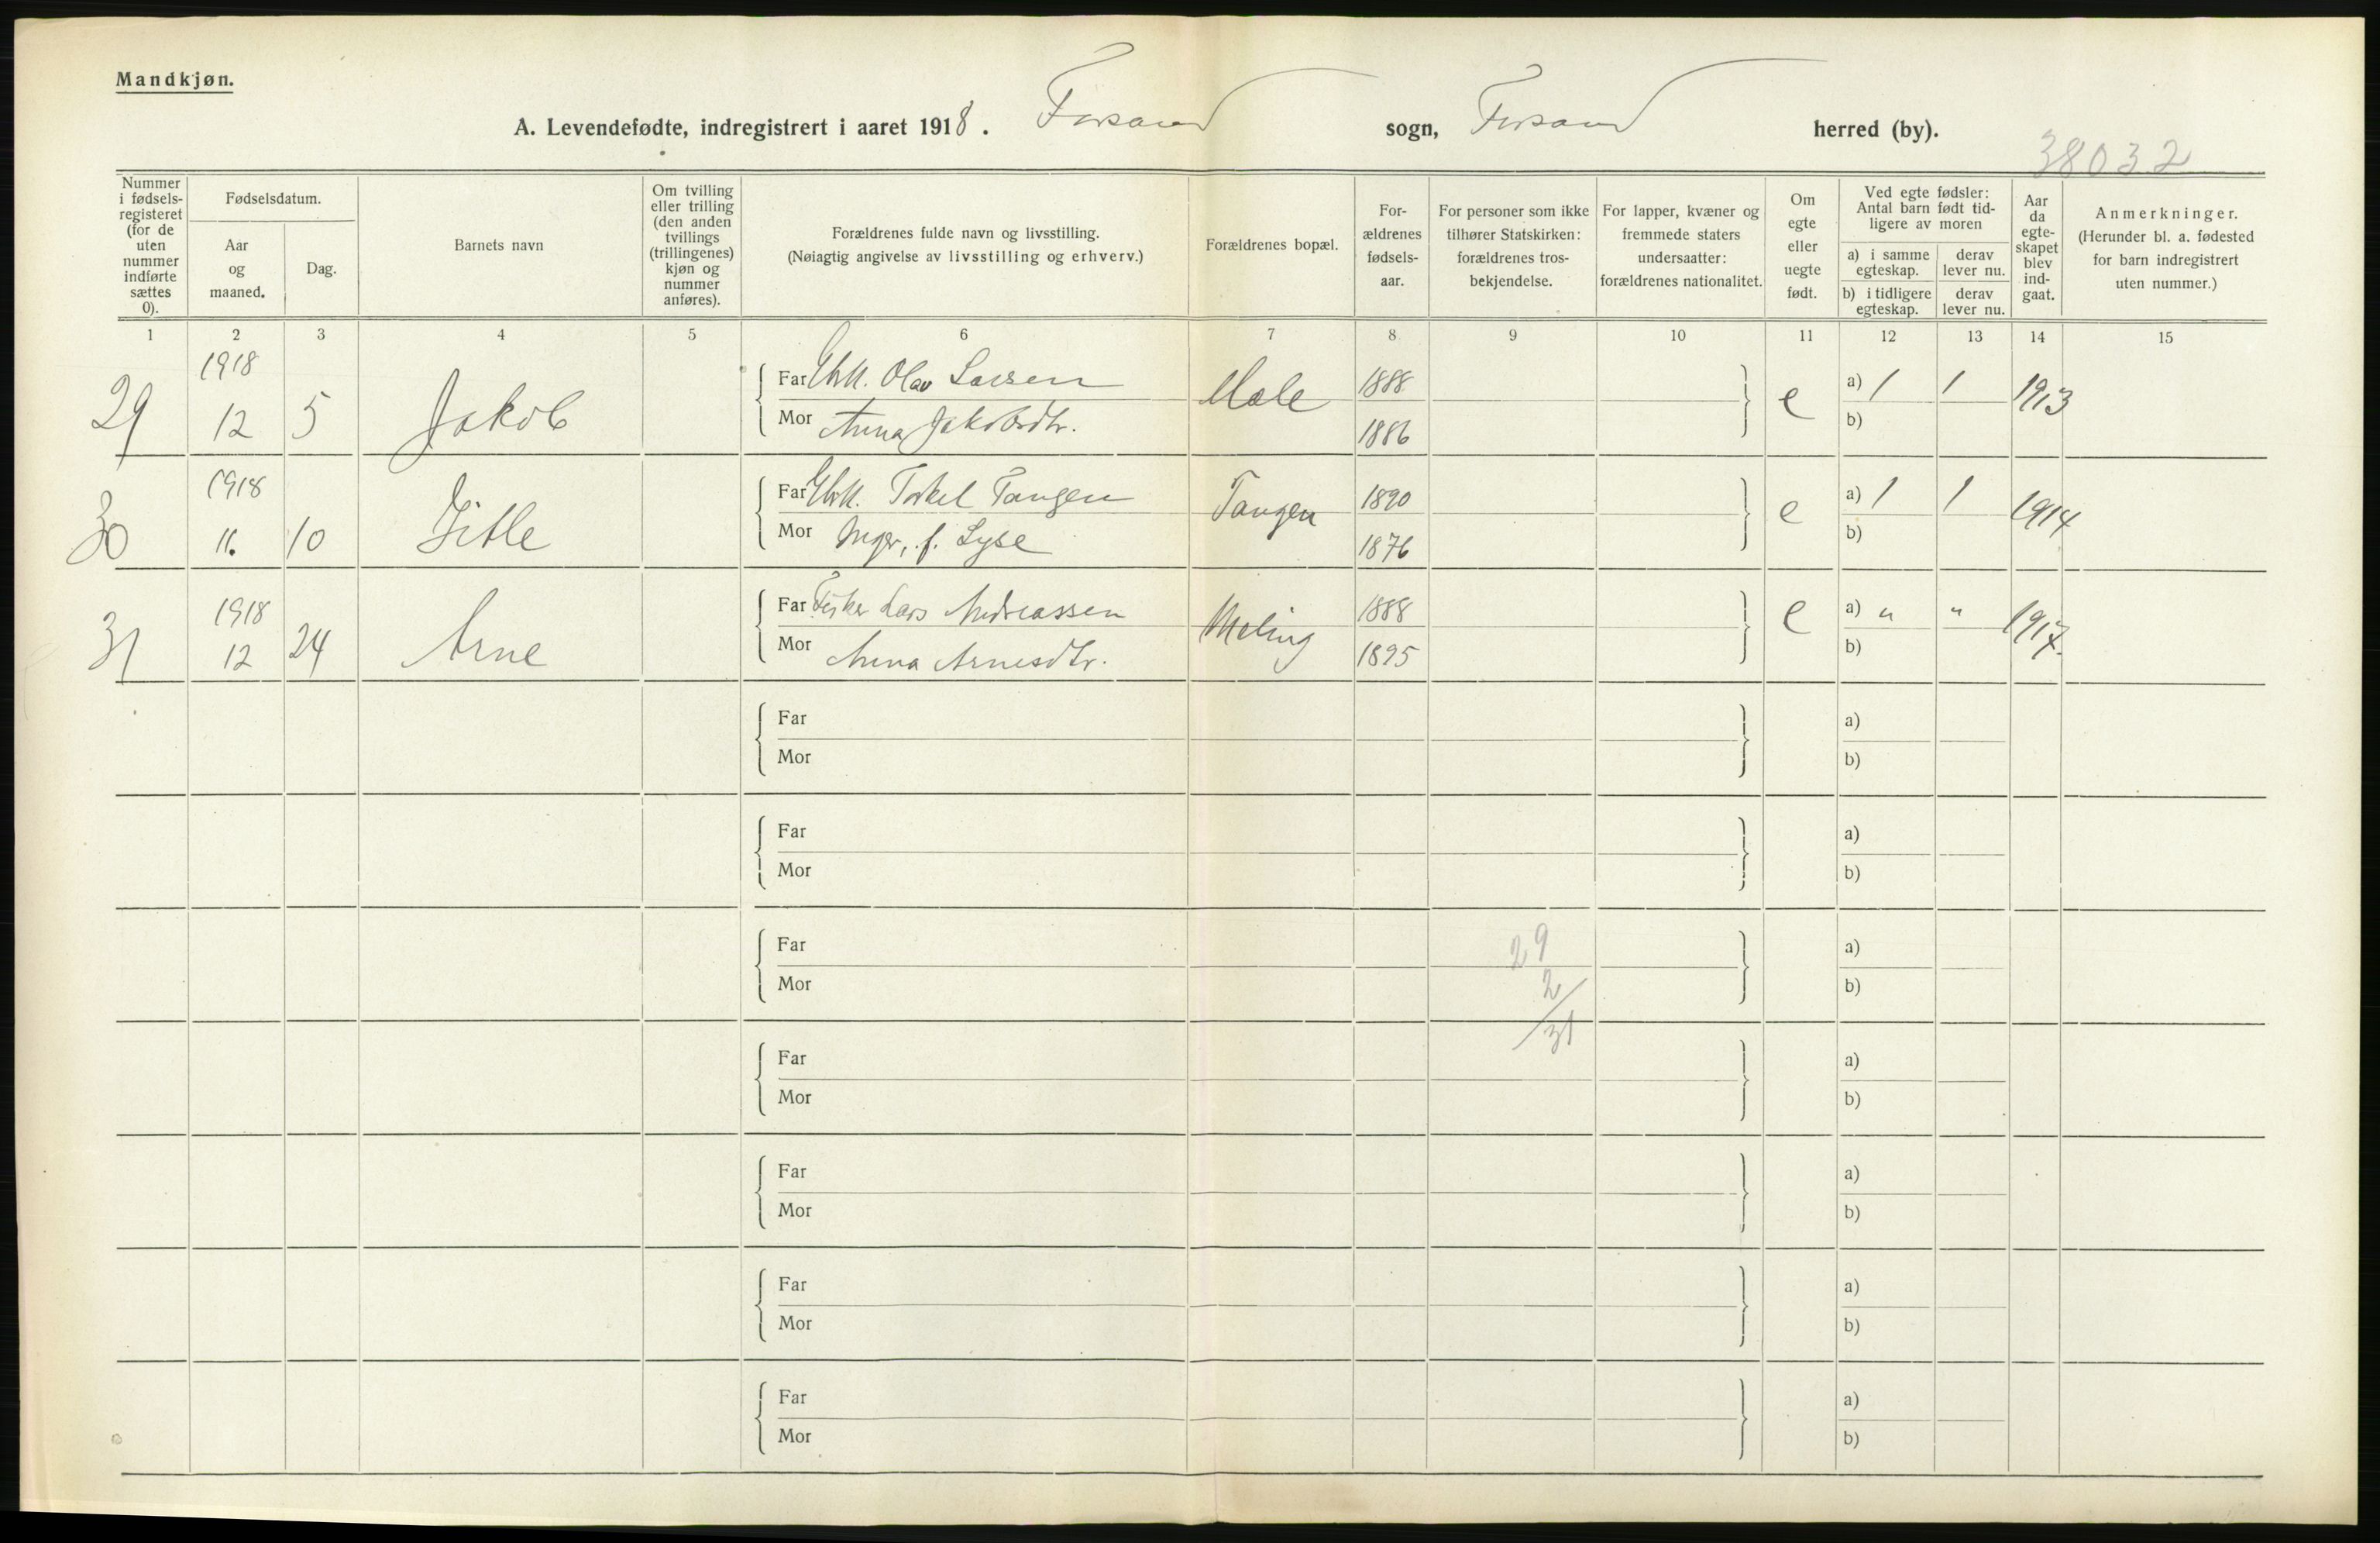 Mandkjøn.
A. Levendefødte, indregistrert i aaret 1918. Forsand sogn, Forsand herred (by).
38032
Nummer i fødsels-registeret (for de uten nummer indførte sættes 0).
Fødselsdatum.
Aar og maaned.
Dag.
Barnets navn
Om tvilling eller trilling (den anden tvillings (trillingenes) kjøn og nummer anføres).
Forældrenes fulde navn og livsstilling.
(Nøiagtig angivelse av livsstilling og erhverv.)
Forældrenes bopæl.
For-ældrenes fødsels-aar.
For personer som ikke tilhører Statskirken: forældrenes tros-bekjendelse.
For lapper, kvæner og fremmede staters undersaatter: forældrenes nationalitet.
Om egte eller uegte født.
Ved egte fødsler: Antal barn født tid-ligere av moren
a) i samme egteskap.
derav lever nu.
b) i tidligere egteskap.
derav lever nu.
Aar da egte-skapet blev ind-gaat.
Anmerkninger.
(Herunder bl. a. fødested for barn indregistrert uten nummer.)
1 2 3 4 5 6 7 8 9 10 11 12 13 14 15
29 1918 12 5 Jakob
Far Gbrk. Olav Larsen
Mor Anna Jakobsdtr.
1888
1886
e a) 1 1 1913
b)
30 1918 11. 10 Sitle
Far Gbrk. Torkel Tangen
Mor Inger, f. Lyse
Tangen 1890
1876
e a) 1 1 1914
b)
31 1918 12 24 Arne
Far Fisker Lars Andreassen
Mor Anna Arnesdtr.
Meling 1888
1895
e a) " " 1917.
b)
Far
Mor
a)
b)
Far
Mor
a)
b)
Far
Mor
29
2
31
a)
b)
Far
Mor
a)
b)
Far
Mor
a)
b)
Far
Mor
a)
b)
Far
Mor
a)
b)